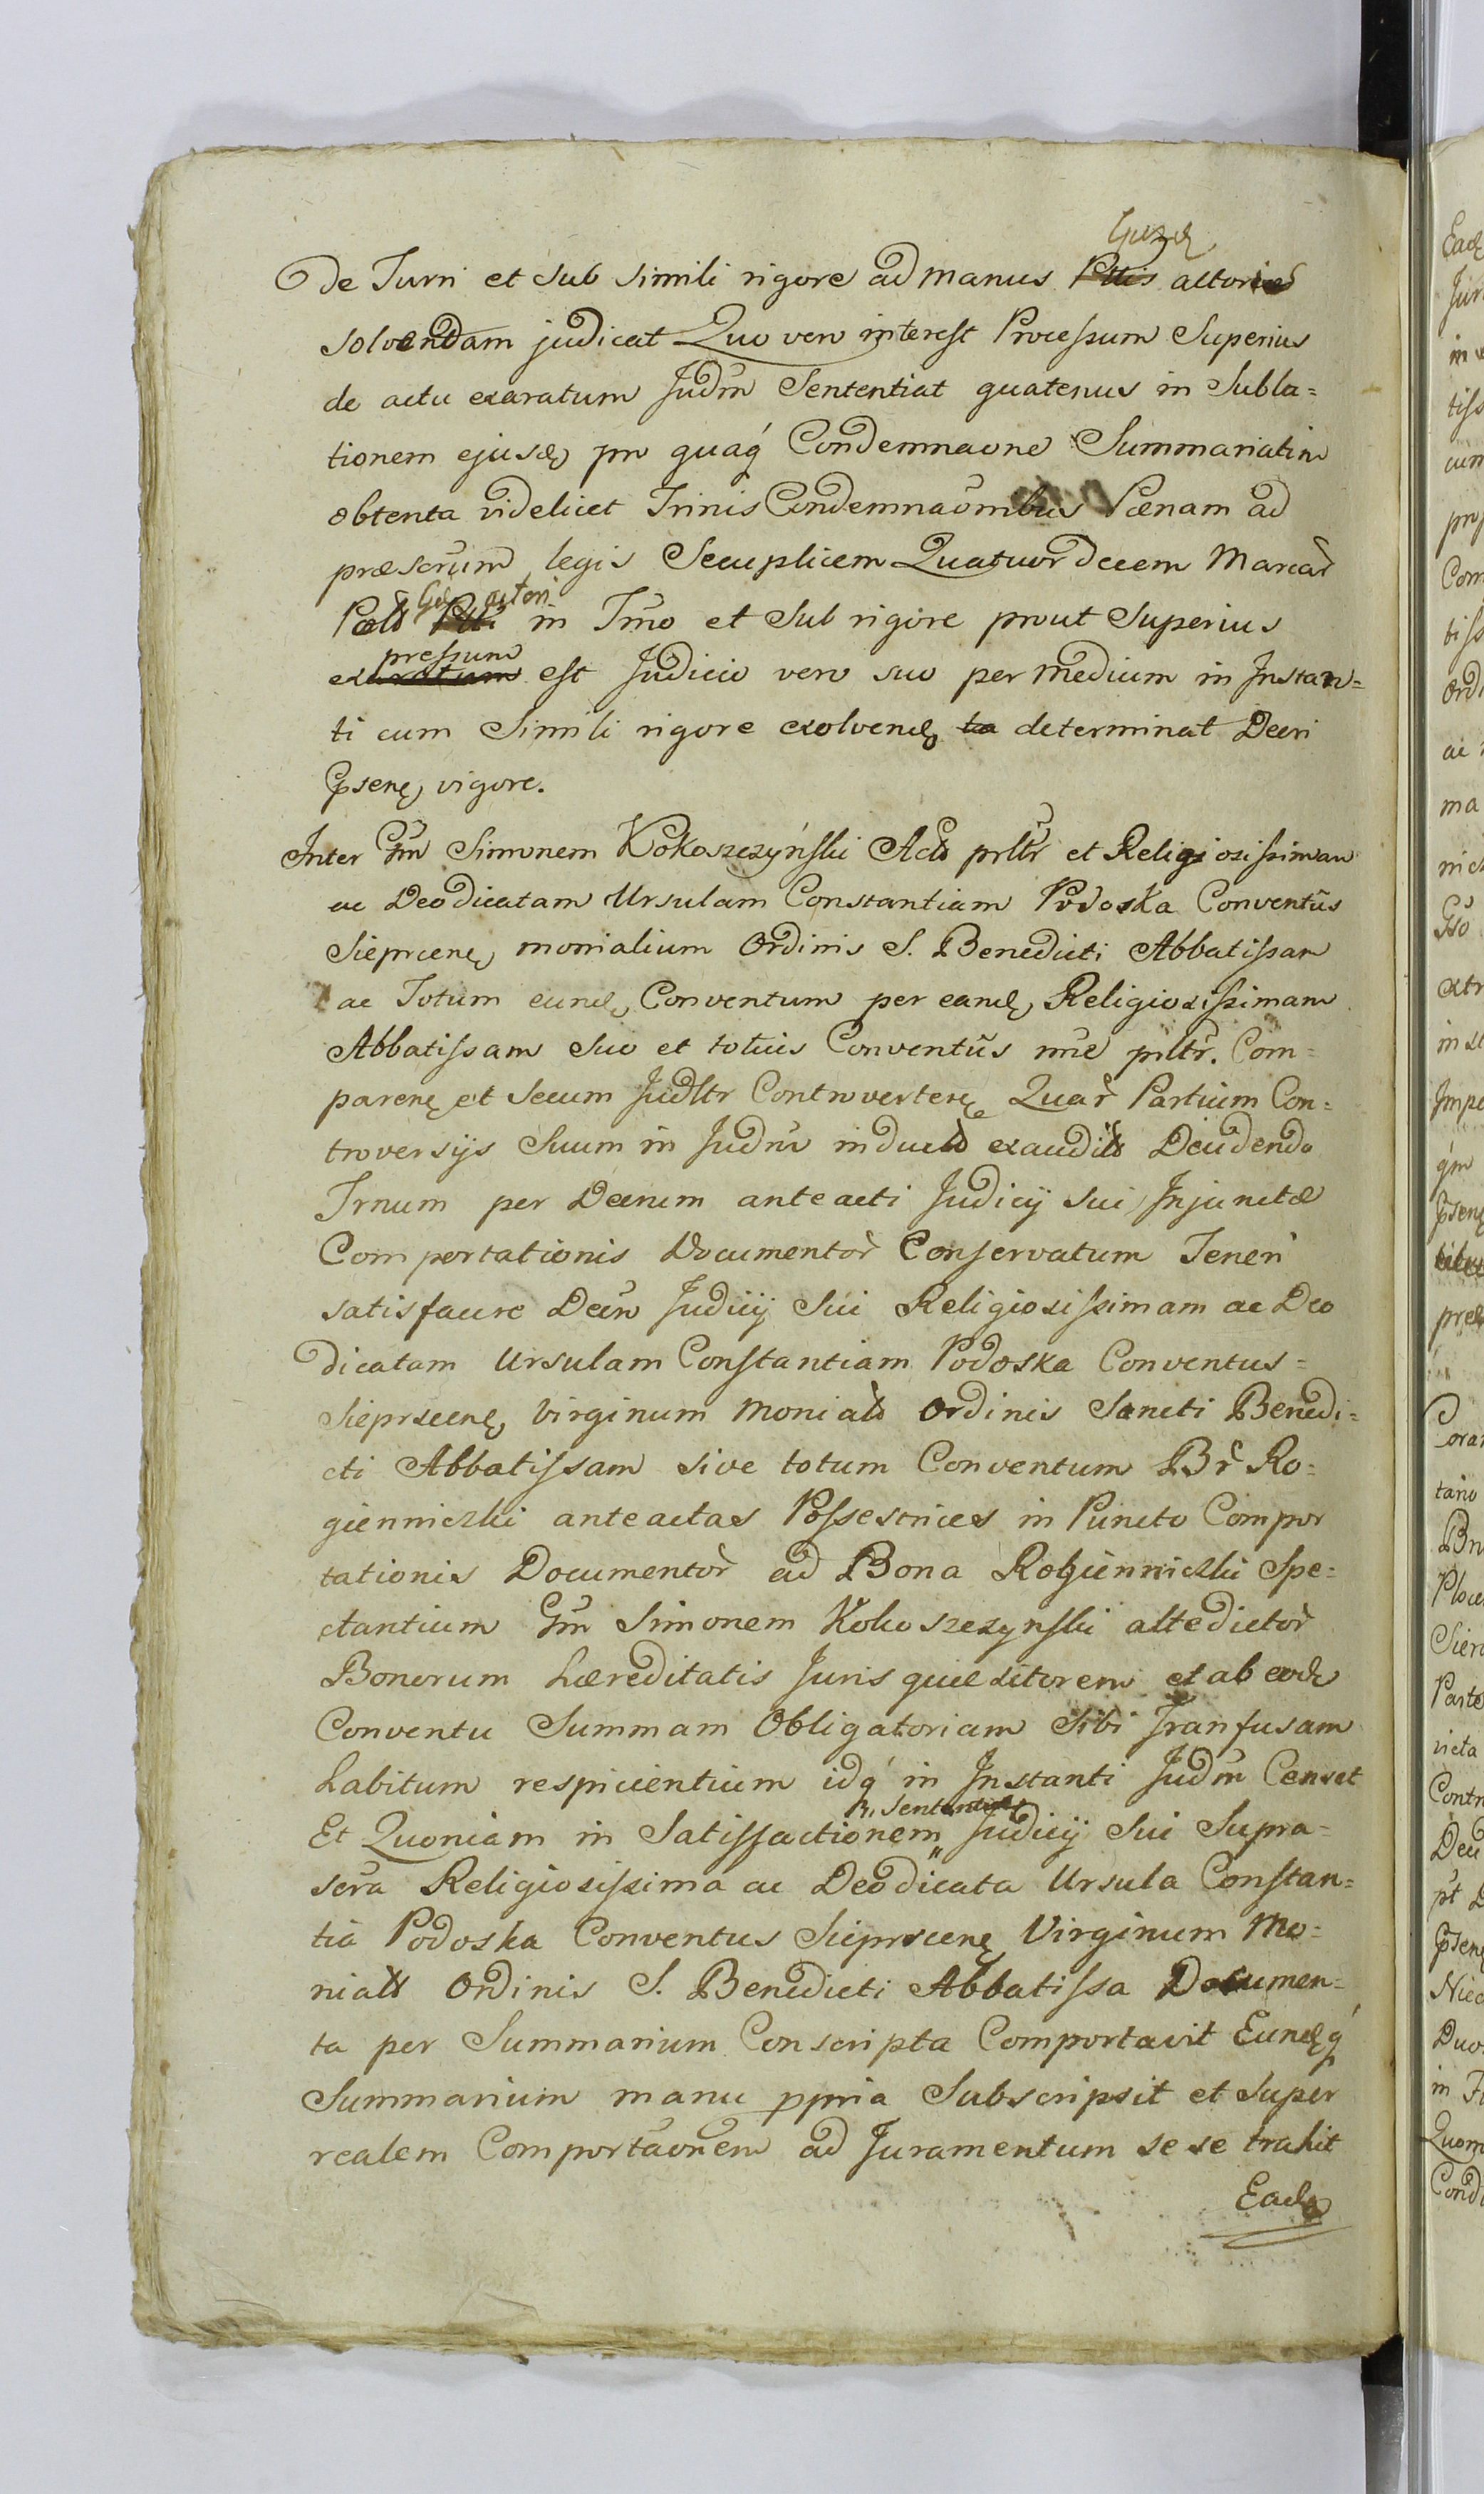 De Turri et sub simili rigore ad manus actoris
solvendam judicat Quo vero interest Processum Superius
de actu exaratum Judm̃ Sententiat quatenus in Subla=
tionem ejusdę pro quaq́ Condemnaõne Summariatim
obtenta videlicet Trinis Condemnaõnibus Pœnam ad
præscrũm legis Secuplicem Quatuordecem Marcar̃
actori
in Tm̃o et sub rigore prout Superius
pressum
est Judicio vero suo per Medium in Instan=
ti cum Simili rigore exolvendę determinat Decri
p̃senę vigore.
Inter Gm̃ Simonem Kokoszczyński Act prltr̃ et Religiosissimam
ac Deodicatam Ursulam Constantiam Podoska Conventũs
Sieprcenę monialium Ordinis S. Benedicti Abbatissam
ac Totum eundę Conventum per eandę Religiosissimam
Abbatissam Suo et totius Conventũs nñe prltr̃. Com=
parenę et Secum Judltr Controvertenę Quar̃ Partium Con=
troversijs Suum in Judm̃ induct exaudit Decidendo
Trnum per Decrum anteacti Judicij sui Injunctæ
Comportationis Documentor̃ Conservatum Teneri
satisfacere Decr̃ Judicij Sui Religiosissimam ac Deo
dicatam Ursulam Constantiam Podoska Conventus=
Sieprscenę Virginum Monial Ordinis Sancti Benedi=
cti Abbatissam sive totum Conventum Br̃ Ro=
gienniczki anteactas Possestrices in Puncto Compor
tationis Documentor̃ ad Bona Rogienniczki Spe=
ctantium Gm̃ Simonem Kokoszczynski altedictor̃
Bonorum hæreditatis Juris quæsitorem et ab eodę
Conventu Summam Obligatoriam Sibi Transfusam
habitum respicientium idq́ in Instanti Judm̃ Censet
Sententiæ
Et Quoniam in Satisfactionem„ Judicij Sui Supra=
scr̃a Religiosissima ac Deodicata Ursula Constan=
tia Podoska Conventus Sieprscenę Virginum Mo=
nial Ordinis S. Benedicti Abbatissa Documen=
ta per Summarium Conscripta Comportavit Eundęq́
Summarium manu ppria Subscripsit et Super
realem Comportaõnem ad Juramentum se se trahit
Eadę